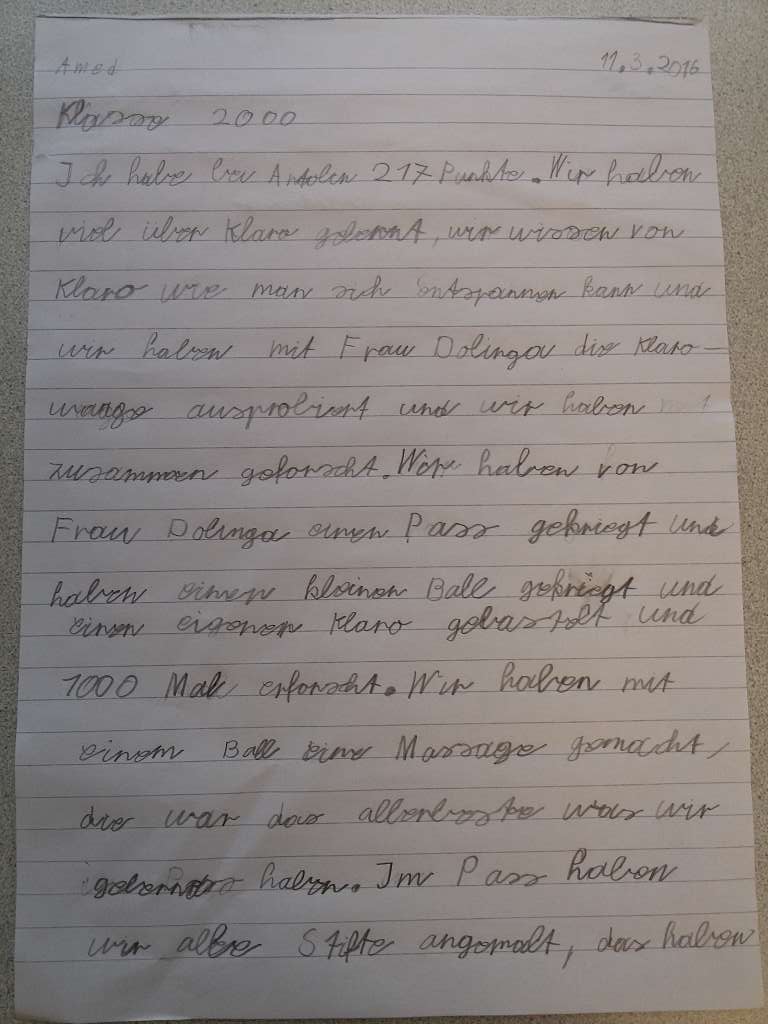 Amed 11.3.2016
Klasse 2000
Ich habe bei Antolin 217 Punkte. Wir haben
viel über Klaro gelernt, wir wissen von
Klaro wie man sich entspannen kann und
wir haben mit Frau Dolinga die Klaro-
waage ausprobiert und wir haben
zusammen geforscht. Wir haben von
Frau Dolinga einen Pass gekriegt und
haben einen kleinen Ball gekriegt und
einen eigenen Klaro gebastelt und
1000 Mal erforscht. Wir haben mit
einem Ball eine Massage gemacht,
die war das allerbeste was wir
haben. Im Pass haben
wir alle Stifte angemalt, das haben